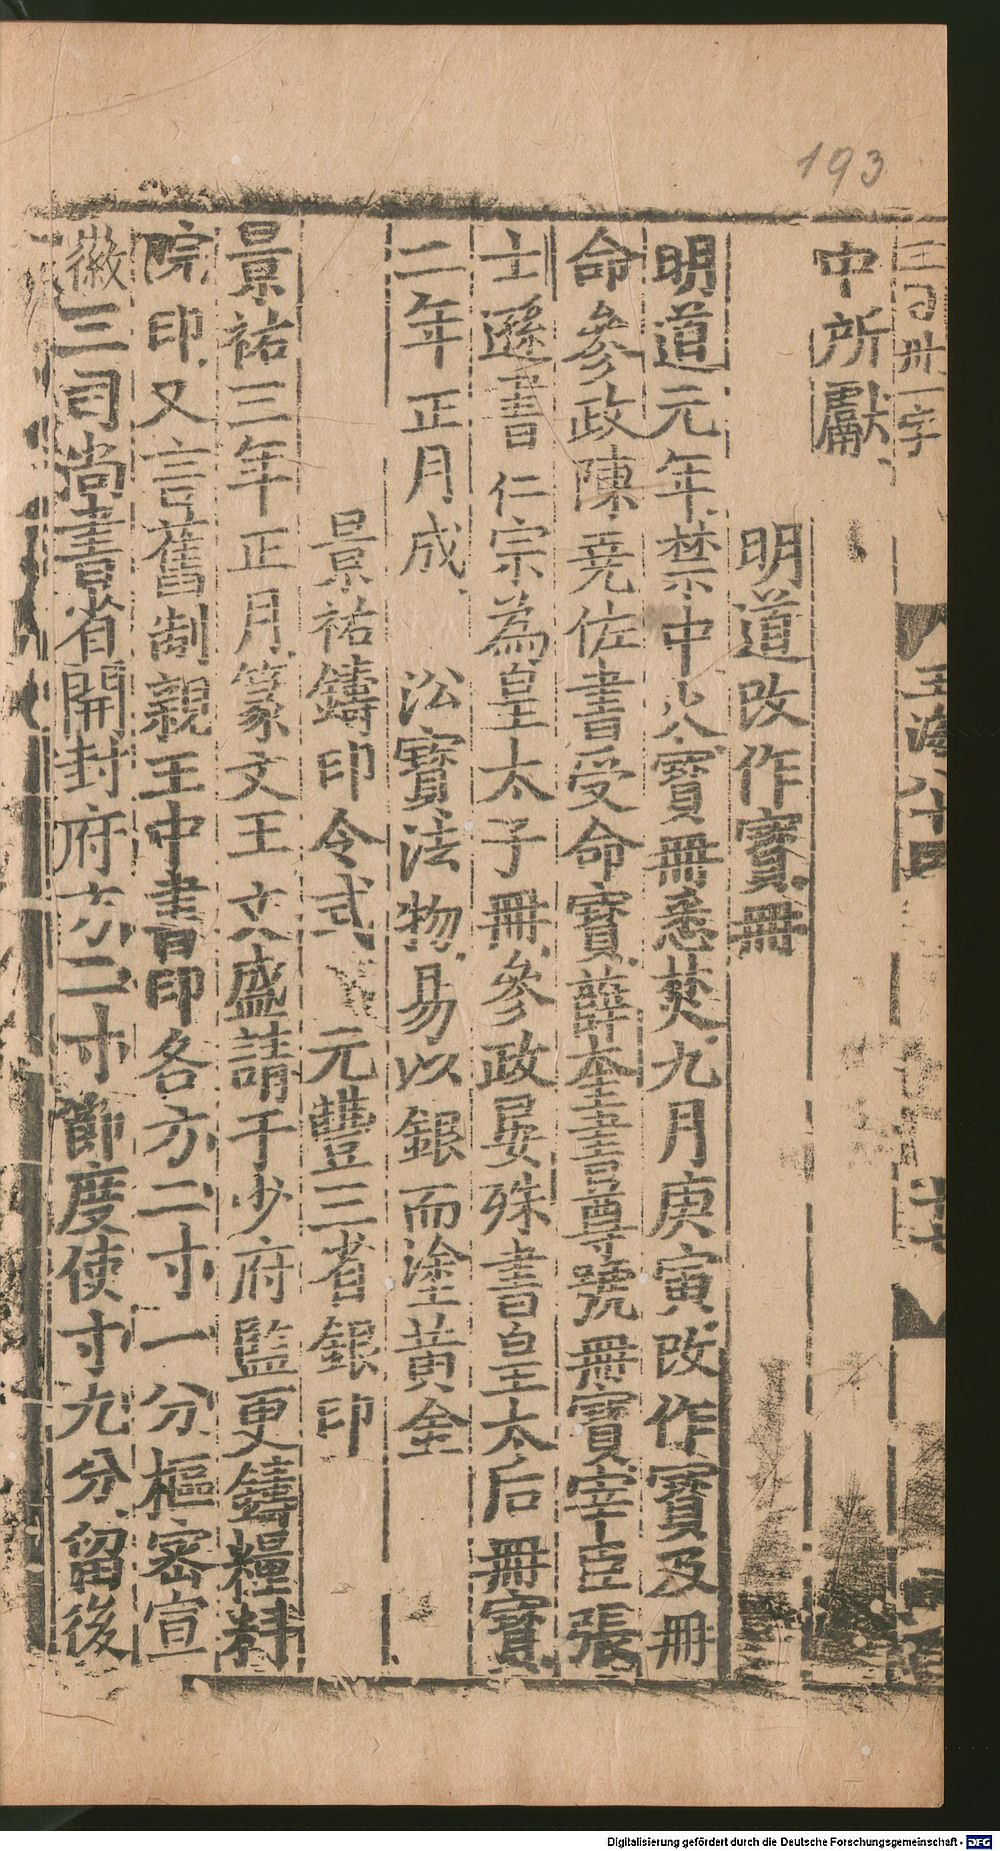 193
三百卅一字
玉海八十四
中所獻
明道改作寳冊
明道元年禁中火寳冊悉焚九月庚寅改作寳及冊
命參政陳堯佐書受命寳薛奎書尊號冊寳宰臣張
士遜書仁宗為皇太子冊參政晏殊書皇太后冊寳
二年正月成 㳂寳法物易以銀而塗黄金
景祐鑄印令式 元豐三省銀印
景祐三年正月篆文王文盛請于少府監更鑄糧料
院印又言舊制親王中書印各方二寸一分樞宻宣
徽三司尚書省開封府方二寸節度使寸九分留後
Digitalisierung gefördert durch die Deutsche Forschungsgemeinschaft - DFG